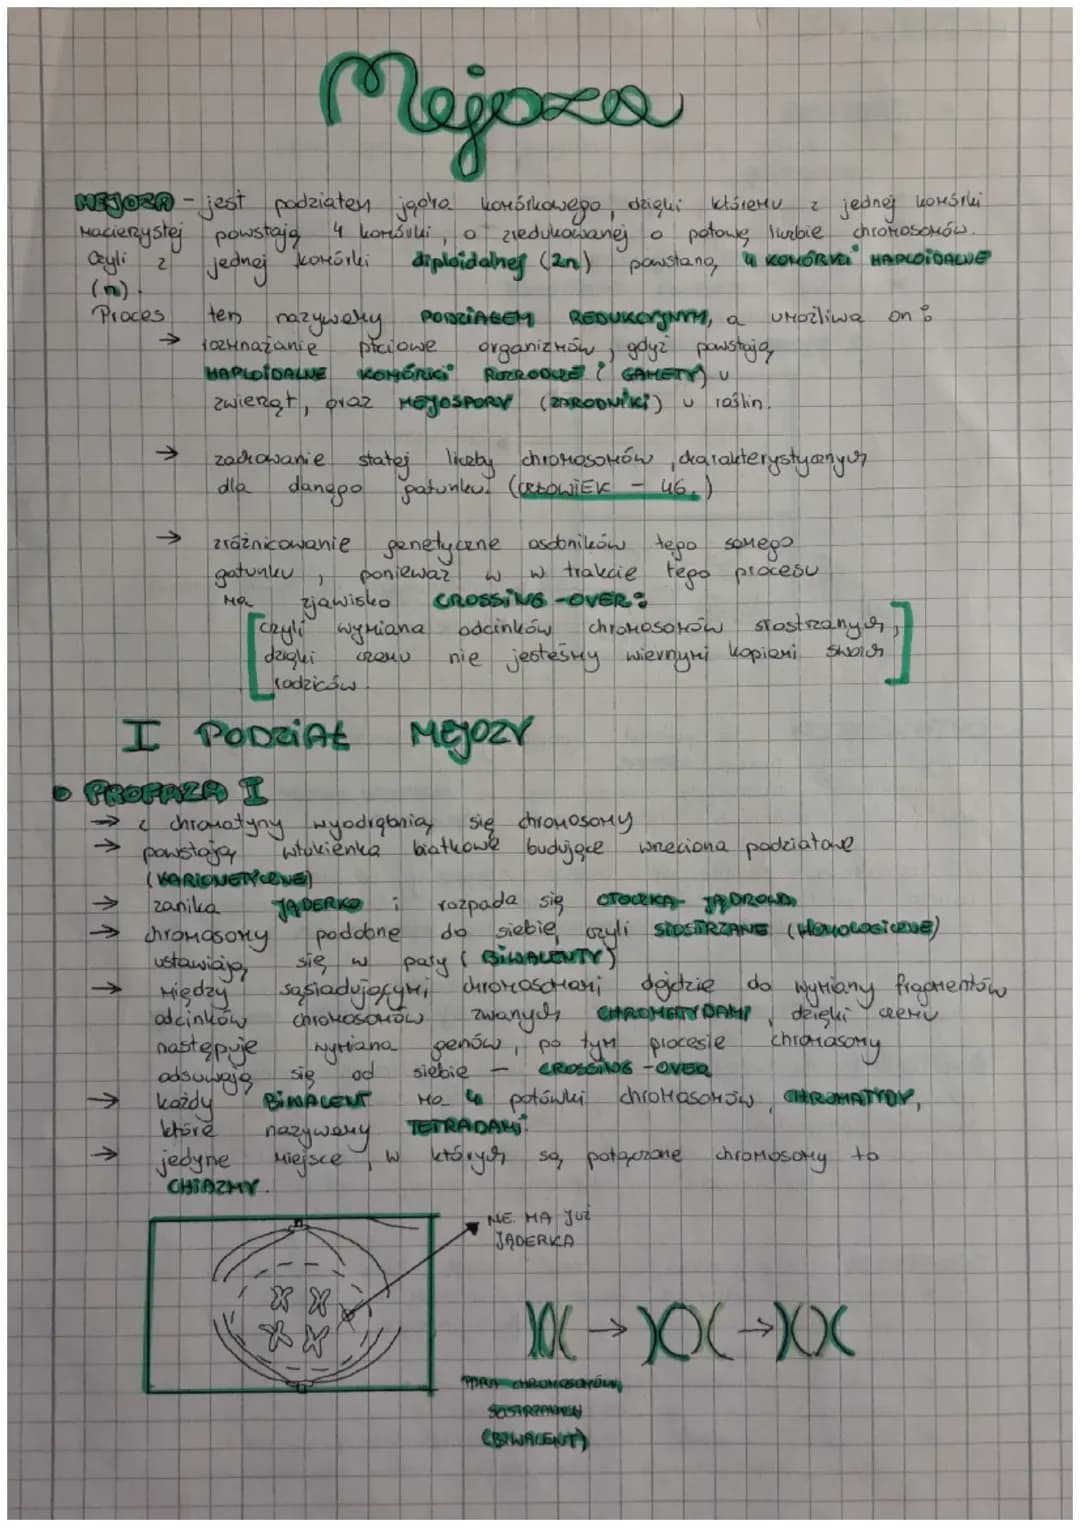 Mejoza
MEJOZA - jest podziałem jądra komórkowego, dzięki któremu z jednej komórki
macierzystej powstają 4 komórki, o zredukowanej o połowę liczbie chromosomów.
czyli z jednej komórki diploidalnej (2n) powstaną 4 KOMÓRKI HAPLOIDALNE
(n).
Proces ten nazywamy PODZIAŁEM REDUKCYJNYM, a umożliwa on:
→ rozmnażanie płciowe organizmów, gdyż powstają
HAPLOIDALNE KOMÓRKI ROZRODCZE (GAMETY) u
zwierząt, oraz MEJOSPORY (ZARODNIKI) u roślin.
→ zachowanie stałej liczby chromosomów, charakterystycznych
dla danego gatunku. (CZŁOWIEK - 46.)
→ zróżnicowanie genetyczne osobników tego samego
gatunku, ponieważ w w trakcie tego procesu
ma zjawisko CROSSING-OVER:
[czyli wymiana odcinków chromosomów siostrzanych,
dzięki czemu nie jesteśmy wiernymi kopiami swoich
rodziców]
I PODZIAŁ MEJOZY
• PROFAZA I
→ z chromatyny wyodrębnią się chromosomy
→ powstają włókienka białkowe budujące wrzeciona podziałowe
(KARIONETYCZNE)
→ zanika JĄDERKO i rozpada się OTOCZKA JĄDROWA
→ chromosomy podobne do siebie, czyli SIOSTRZANE (HOMOLOGICZNE)
ustawiają się w pary (BIWALENTY)
→ między sąsiadującymi chromosomami dojdzie do wymiany fragmentów
odcinków chromosomów zwanych CHROMATYDAMI, dzięki czemu
następuje wymiana genów, po tym procesie chromosomy
odsuwają się od siebie - CROSSING-OVER
→ każdy BIWALENT ma 4 połówki chromosomów, CHROMATYDY,
które nazywamy TETRADAMI.
→ jedyne miejsce, w których są połączone chromosomy to
CHIAZMY.
NIE MA JUŻ
JĄDERKA
PARA CHROMOSOMÓW
SIOSTRZANYCH
(BIWALENT)